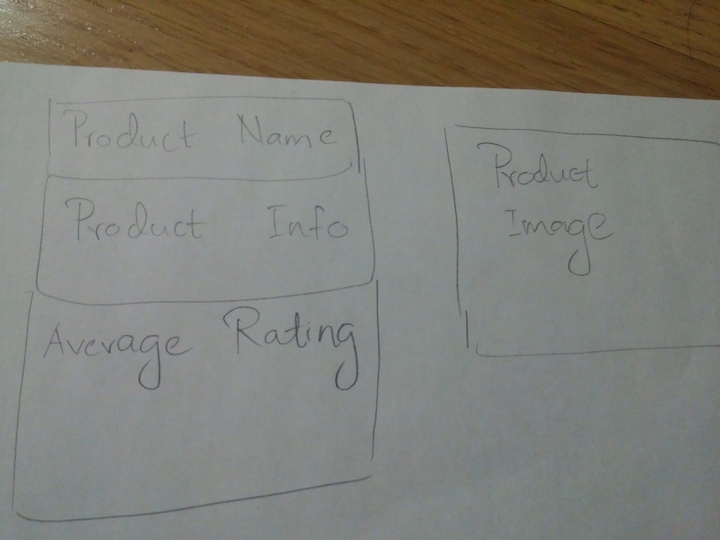 Product Name
Product Info
Average Rating
Product
Image